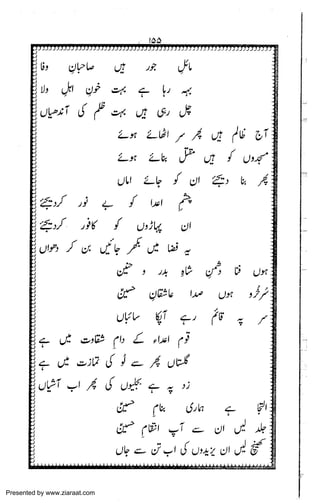 ۱۵۵
مائلِ جور ہیں صاحبانِ وفا
بہہ رہا ہے بہت خونِ اہلِ ولا
چل رہی ہیں بہت ظلم کی آندھیاں
آج ظالم ہیں پھر سر اٹھائے ہوئے
مسجدوں کو ہیں مقتل بنائے ہوئے
پھر بنا دیجئے ان کو جائے اماں
چشمِ اعدا کو بے نور کردیجئے
ان پہاڑوں کو کافور کردیجئے
یہ فضا میں بکھر جائیں بن کر دھواں
ہوں فنا دشمنِ شاہِ بدر و حنین
سُرخرو ہوں سدا عاشقانِ حسینؑ
سر پہ قائم رہے آپکا سائباں
قومِ اعداء کے دامِ شقاوت میں ہے
گلستاں پھر سے لُو کی تمازت میں ہے
زد پہ ہے بجلیوں کی پھر اب آشیاں
التجا ہے ہماری بنامِ حسینؑ
جلد لیں ان سے آپ انتقامِ حسینؑ
کھینچ لیں ان یزیدوں کی اب تن سے جاں
Presented by www.ziaraat.com